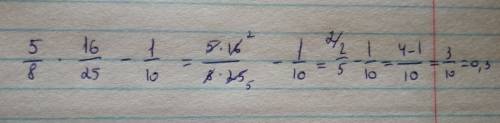 5/8 · 16/25 − 1/10 = 5·16²/8·25₅ − 1/10 = ²⁄2/5 − 1/10 = 4−1/10 = 3/10 = 0,3